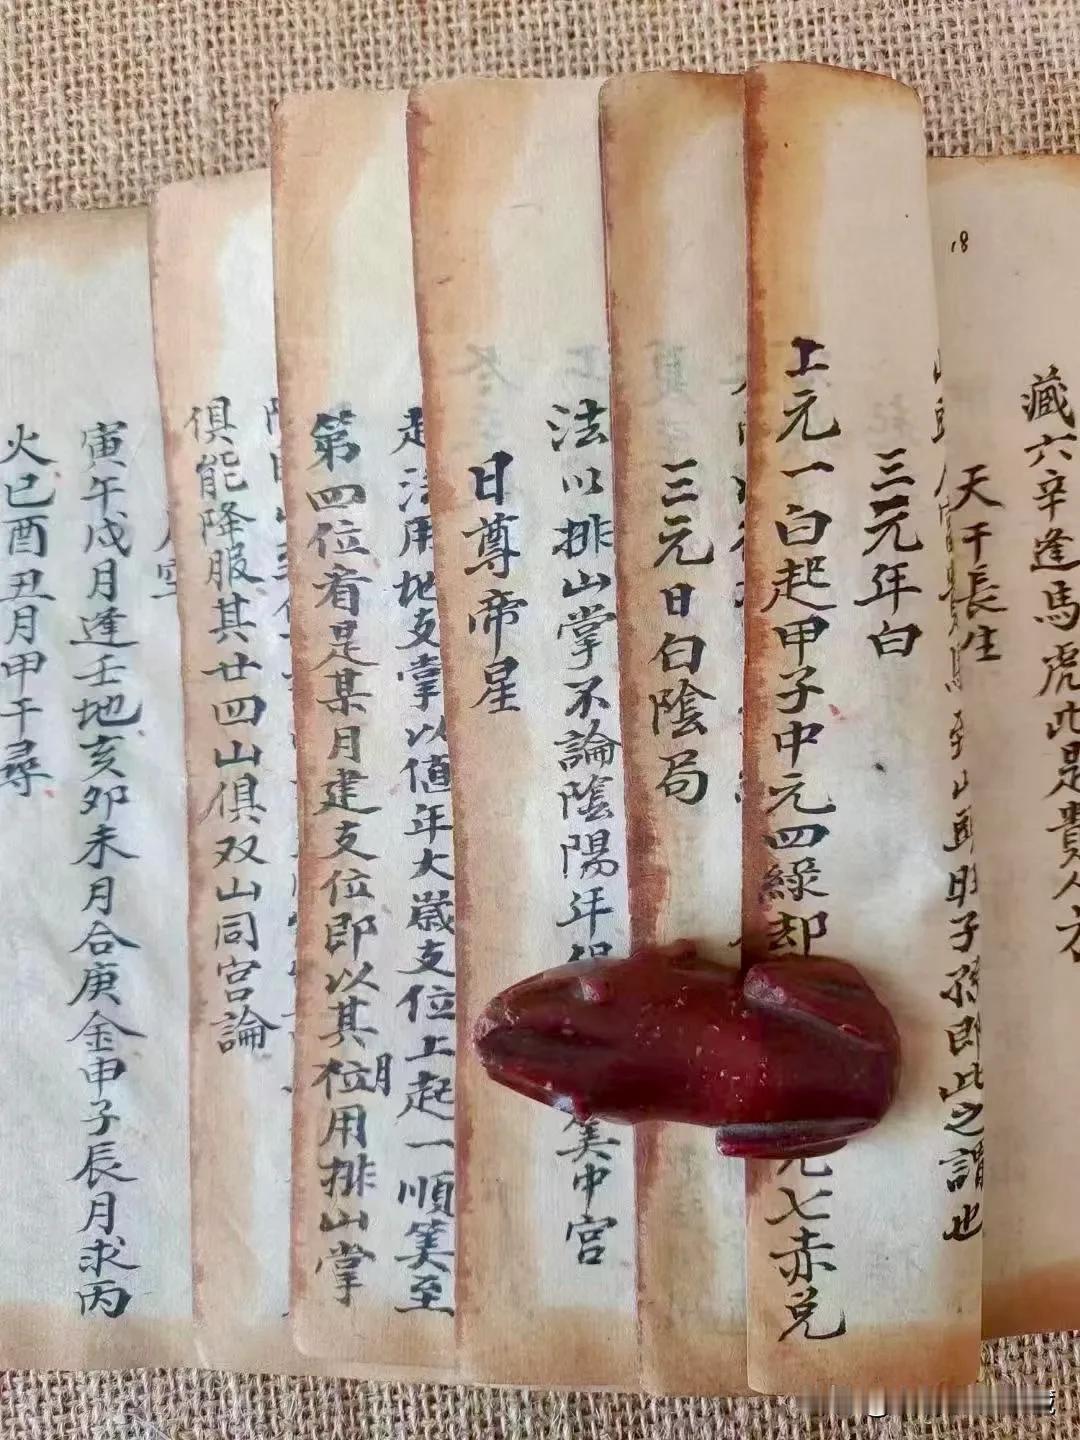 18
藏六辛逢馬虎此是貴人方
天干長生
至山頭旺子孫即此之謂也
三元年白
上元一白起甲子中元四綠却
元七赤兌
三元日白陰局
法以排山掌不論陰陽年
筭中宮
日尊帝星
起法用地支掌以值年大歲支位上起一順筭至
第四位看是某月建支位即以其位用排山掌
月
俱能降服其廿四山俱双山同宮論
寅午戌月逢壬地亥卯未月合庚金申子辰月求丙
火巳酉丑月甲干尋